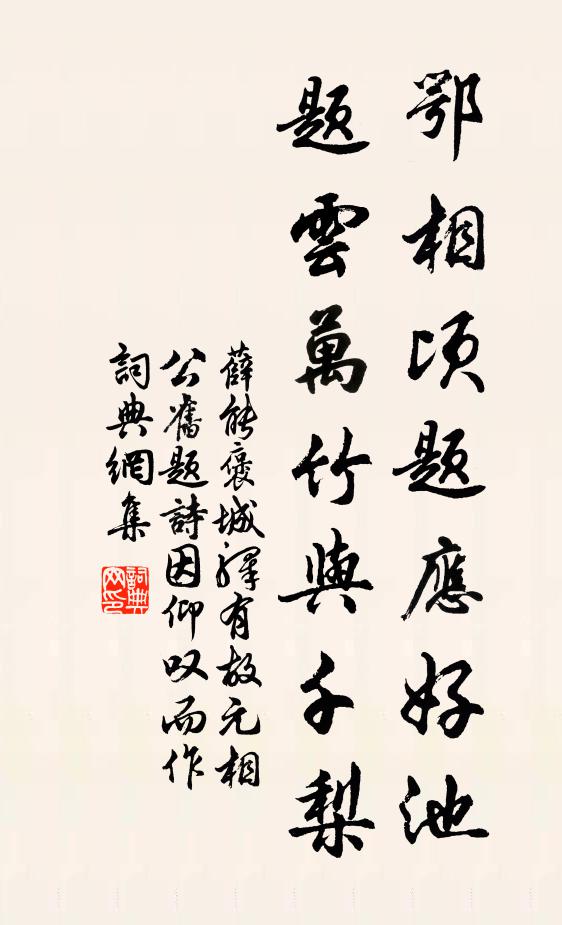 鄂相頃題應好池
題雲萬竹與千梨
薛能褒城驛有故元相
公舊題詩因仰歎而作
詞典網集
詞典網印